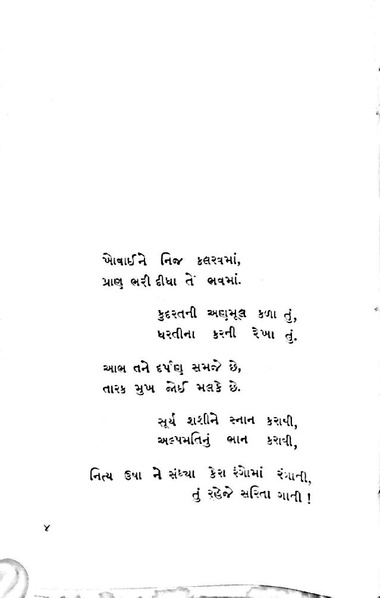 ખોવાઈને નિજ કલરવમાં,
પ્રાણ ભરી દીધા તેં ભવમાં.
કુદરતની અણમૂલ કળા તું,
ધરતીના કરની રેખા તું.
આભ તને દર્પણ સમજે છે,
તારક મુખ જોઈ મલકે છે.
સૂર્ય શશીને સ્નાન કરાવી,
અલ્પમતિનું ભાન કરાવી,
નિત્ય ઉષા ને સંધ્યા કેરા રંગોમાં રંગાતી,
તું રહેજે સરિતા ગાતી !
૪